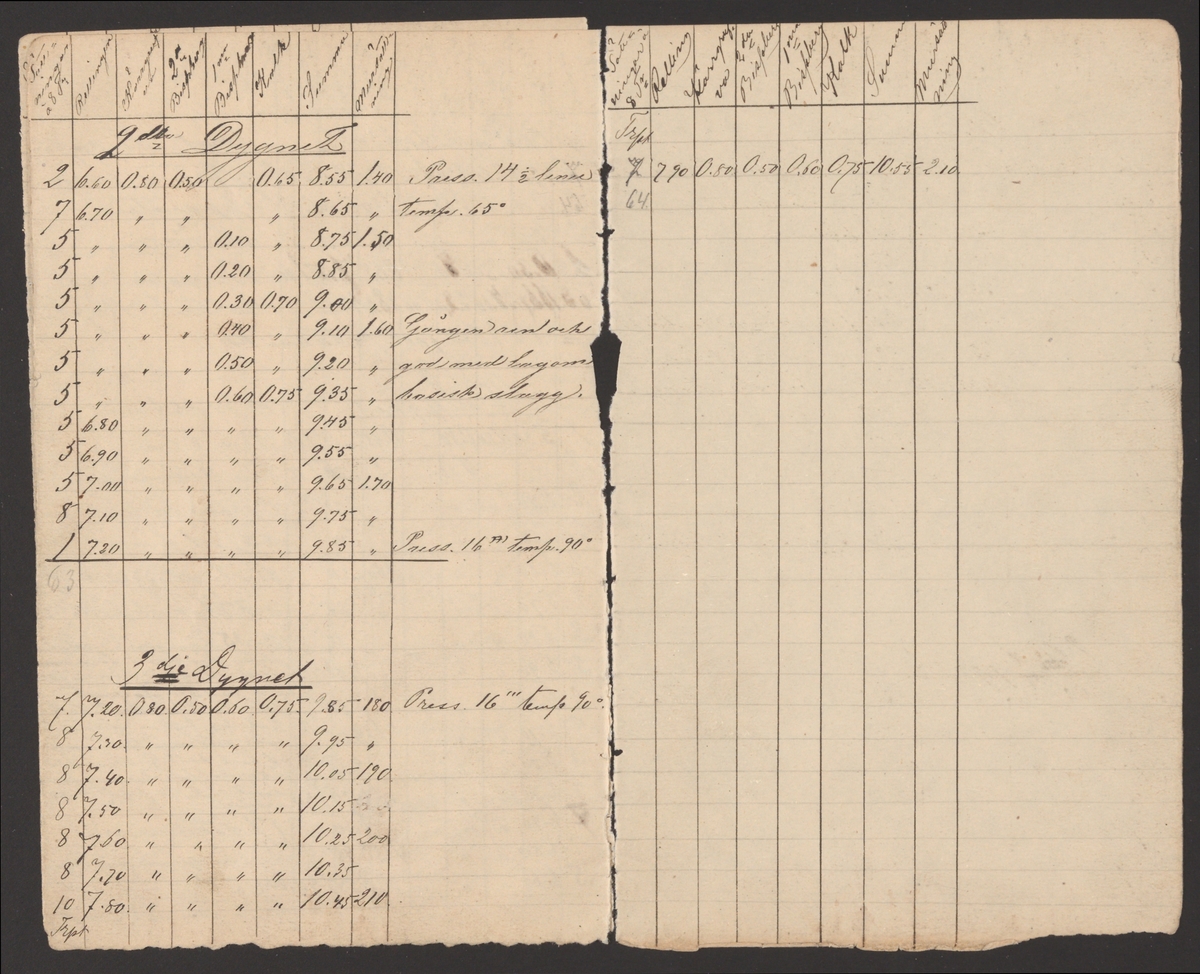 Rellingen 2a Bispberg 1ma Bispberg Kalk Summa
2dra Dygnet
2 6.60 0.80 0.50 0.65 8.55 1.40 Press. 14 1/2 linie
7 6.70 " " " 8.65 " temp. 65°
5 " " " 0.10 " 8.75 1.50
5 " " " 0.20 " 8.85 "
5 " " " 0.30 0.70 9.00 "
5 " " " 0.40 " 9.10 1.60 Gången ren och
5 " " " 0.50 " 9.20 " god med lagom
5 " " " 0.60 0.75 9.35 " basisk slagg.
5 6.80 " " " " 9.45 "
5 6.90 " " " " 9.55 "
5 7.00 " " " " 9.65 1.70
8 7.10 " " " " 9.75 "
1 7.20 " " " " 9.85 " Press. 16''' temp. 90°
63
3dje Dygnet
7. 7.20 0.80 0.50 0.60 0.75 9.85 180 Press. 16''' temp 90°
8 7.30 " " " " 9.95 "
8 7.40 " " " " 10.05 190
8 7.50 " " " " 10.15
8 7.60 " " " " 10.25 200
8 7.70 " " " " 10.35
10 7.80 " " " " 10.45 210
Trpt
Relling Bispberg 1ma Bispberg Kalk Summa
Trpt
7 7.90 0.80 0.50 0.60 0.75 10.55 2.10
64